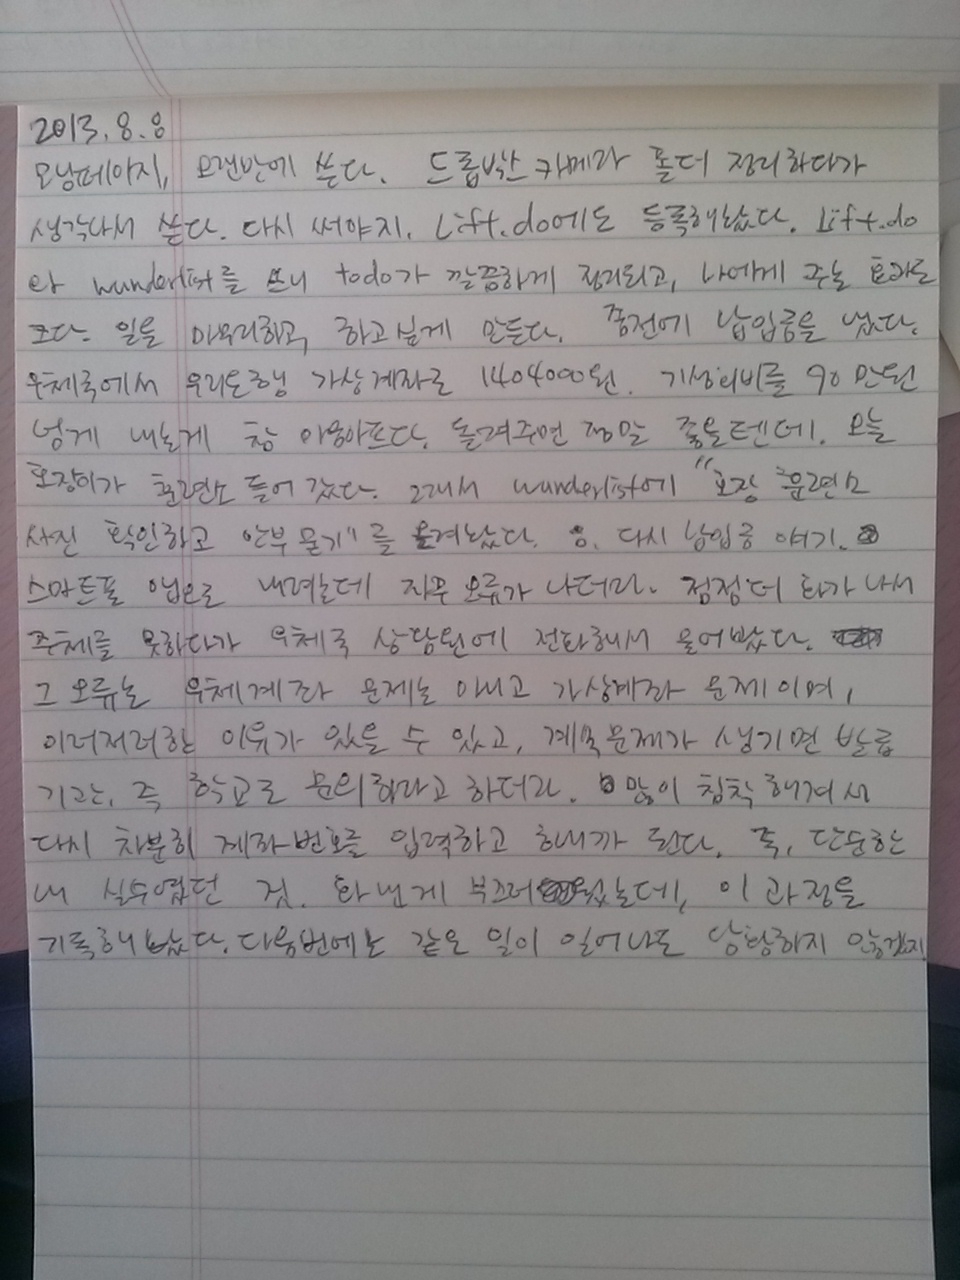 2013.8.8
모닝페이지, 오랜만에 쓴다. 드롭박스 카메라 폴더 정리하다가
생각나서 쓴다. 다시 써야지. Lift.do에도 등록해놨다. Lift.do
와 wunderlist를 쓰니 todo가 깔끔하게 정리되고, 나에게 주는 효과도
크다. 일을 마무리하고, 하고싶게 만든다. 좀전에 납입금을 냈다.
우체국에서 우리은행 가상계좌로 1404000원. 기성회비를 90만원
넘게 내는게 참 마음아프다. 돌려주면 정말 좋을텐데. 오늘
훈련소 들어갔다. 그래서 wunderlist에 "훈련소
사진 확인하고 안부 묻기"를 옮겨놨다. 음. 다시 납입금 얘기.
스마트폰 앱으로 내려는데 자꾸 오류가 나더라. 점점 더 화가 나서
주체를 못하다가 우체국 상담원에 전화해서 물어봤다.
그 오류는 우체계좌 문제는 아니고 가상계좌 문제이며,
이러저러한 이유가 있을 수 있고, 계속 문제가 생기면 발급
기관, 즉 학교로 문의하라고 하더라. 많이 침착해져서
다시 차분히 계좌번호를 입력하고 하니까 된다. 즉, 단순한
내 실수였던 것. 화낸게 부끄러웠는데, 이 과정을
기록해 봤다. 다음번에는 같은 일이 일어나도 당황하지 않겠지